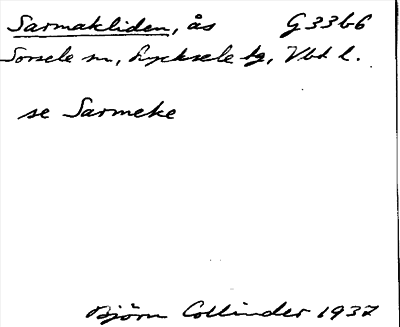 Sarmakliden, ås G33b6
Sorsele sn, Lycksele tg, Vbt l.
se Sarmeke
Björn Collinder 1937